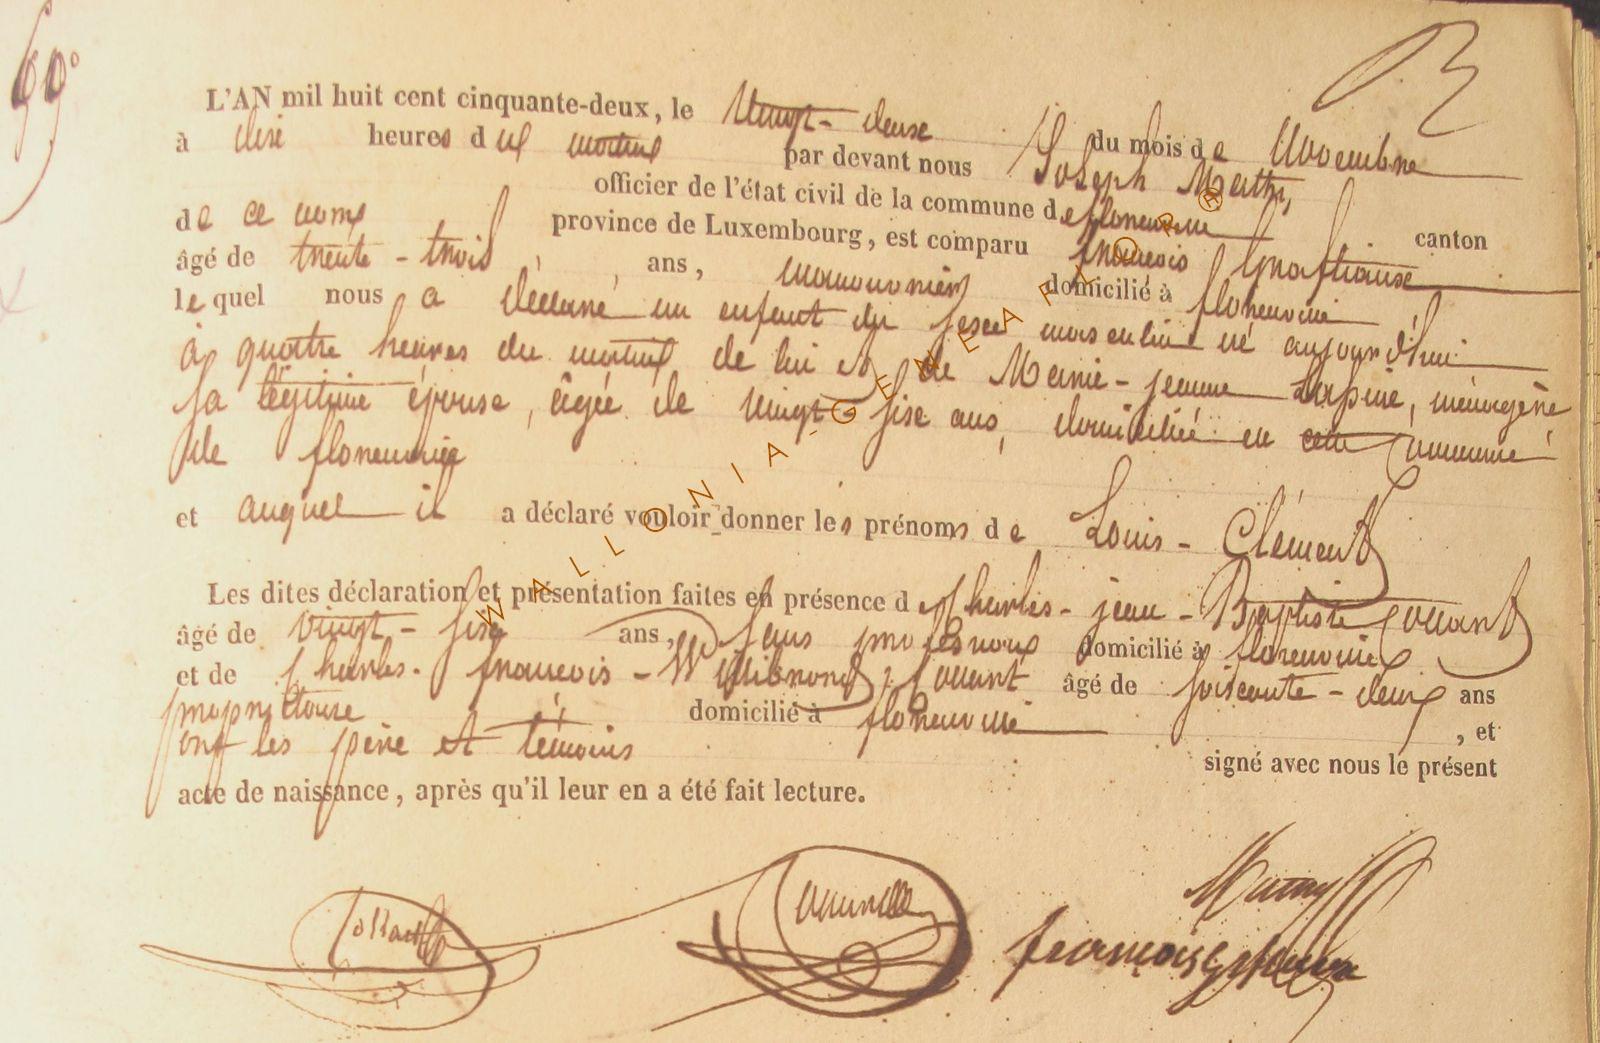 69°
L'AN mil huit cent cinquante-deux, le Vingt-deuse du mois de Novembre
à dise heures du matin par devant nous Joseph Mathy,
officier de l'état civil de la commune de florenville canton
de ce nom province de Luxembourg, est comparu françois
âgé de trente-trois ans, domicilié à florenville
lequel nous a déclaré un enfant du sexe masculin né aujourd'hui
à quatre heures du matin de lui et de Marie-jeanne ménagère
sa légitime épouse, âgée de vingt-sise ans, domiciliée en cette Commune
de florenville
et auquel il a déclaré vouloir donner les prénoms de Louis-Clément
Les dites déclaration et présentation faites en présence de Charles-jean-Baptiste
âgé de vingt-sise ans, sans profession domicilié à florenville
et de Charles-françois- âgé de soiscante-deux ans
propriétaire domicilié à florenville, et
ont les père et témoins signé avec nous le présent
acte de naissance, après qu'il leur en a été fait lecture.
Mathy
françois
WALLONIA-GENEAFLOR®